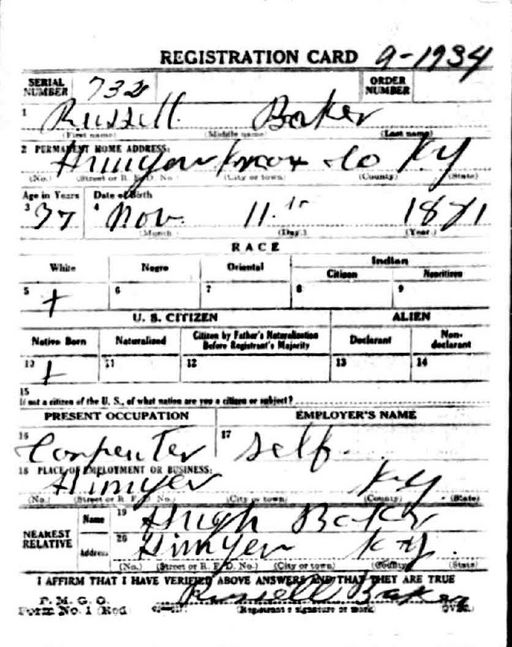 REGISTRATION CARD 9-1934
SERIAL NUMBER 732 ORDER NUMBER
1 Russell Baker
(First name) (Middle name) (Last name)
2 PERMANENT HOME ADDRESS:
Himyer Knox Co Ky
(No.) (Street or R. F. D. No.) (City or town) (County) (State)
Age in Years Date of Birth
3 4 Nov. 11 1871
(Month) (Day) (Year)
RACE
White Negro Oriental Indian
Citizen Noncitizen
5 + 6 7 8 9
U. S. CITIZEN ALIEN
Native Born Naturalized Citizen by Father's Naturalization Before Registrant's Majority Declarant Non-declarant
10 + 11 12 13 14
15
If not a citizen of the U. S., of what nation are you a citizen or subject?
PRESENT OCCUPATION EMPLOYER'S NAME
16 Carpenter 17 Self
18 PLACE OF EMPLOYMENT OR BUSINESS:
Himyer Ky
(No.) (Street or R. F. D. No.) (City or town) (County) (State)
NEAREST RELATIVE Name 19 Hugh Baker
Address 20 Himyer Ky.
(No.) (Street or R. F. D. No.) (City or town) (County) (State)
I AFFIRM THAT I HAVE VERIFIED ABOVE ANSWERS AND THAT THEY ARE TRUE
P. M. G. O.
Form No. 1 (Red) Russell Baker
(Registrant's signature or mark) (OVER)